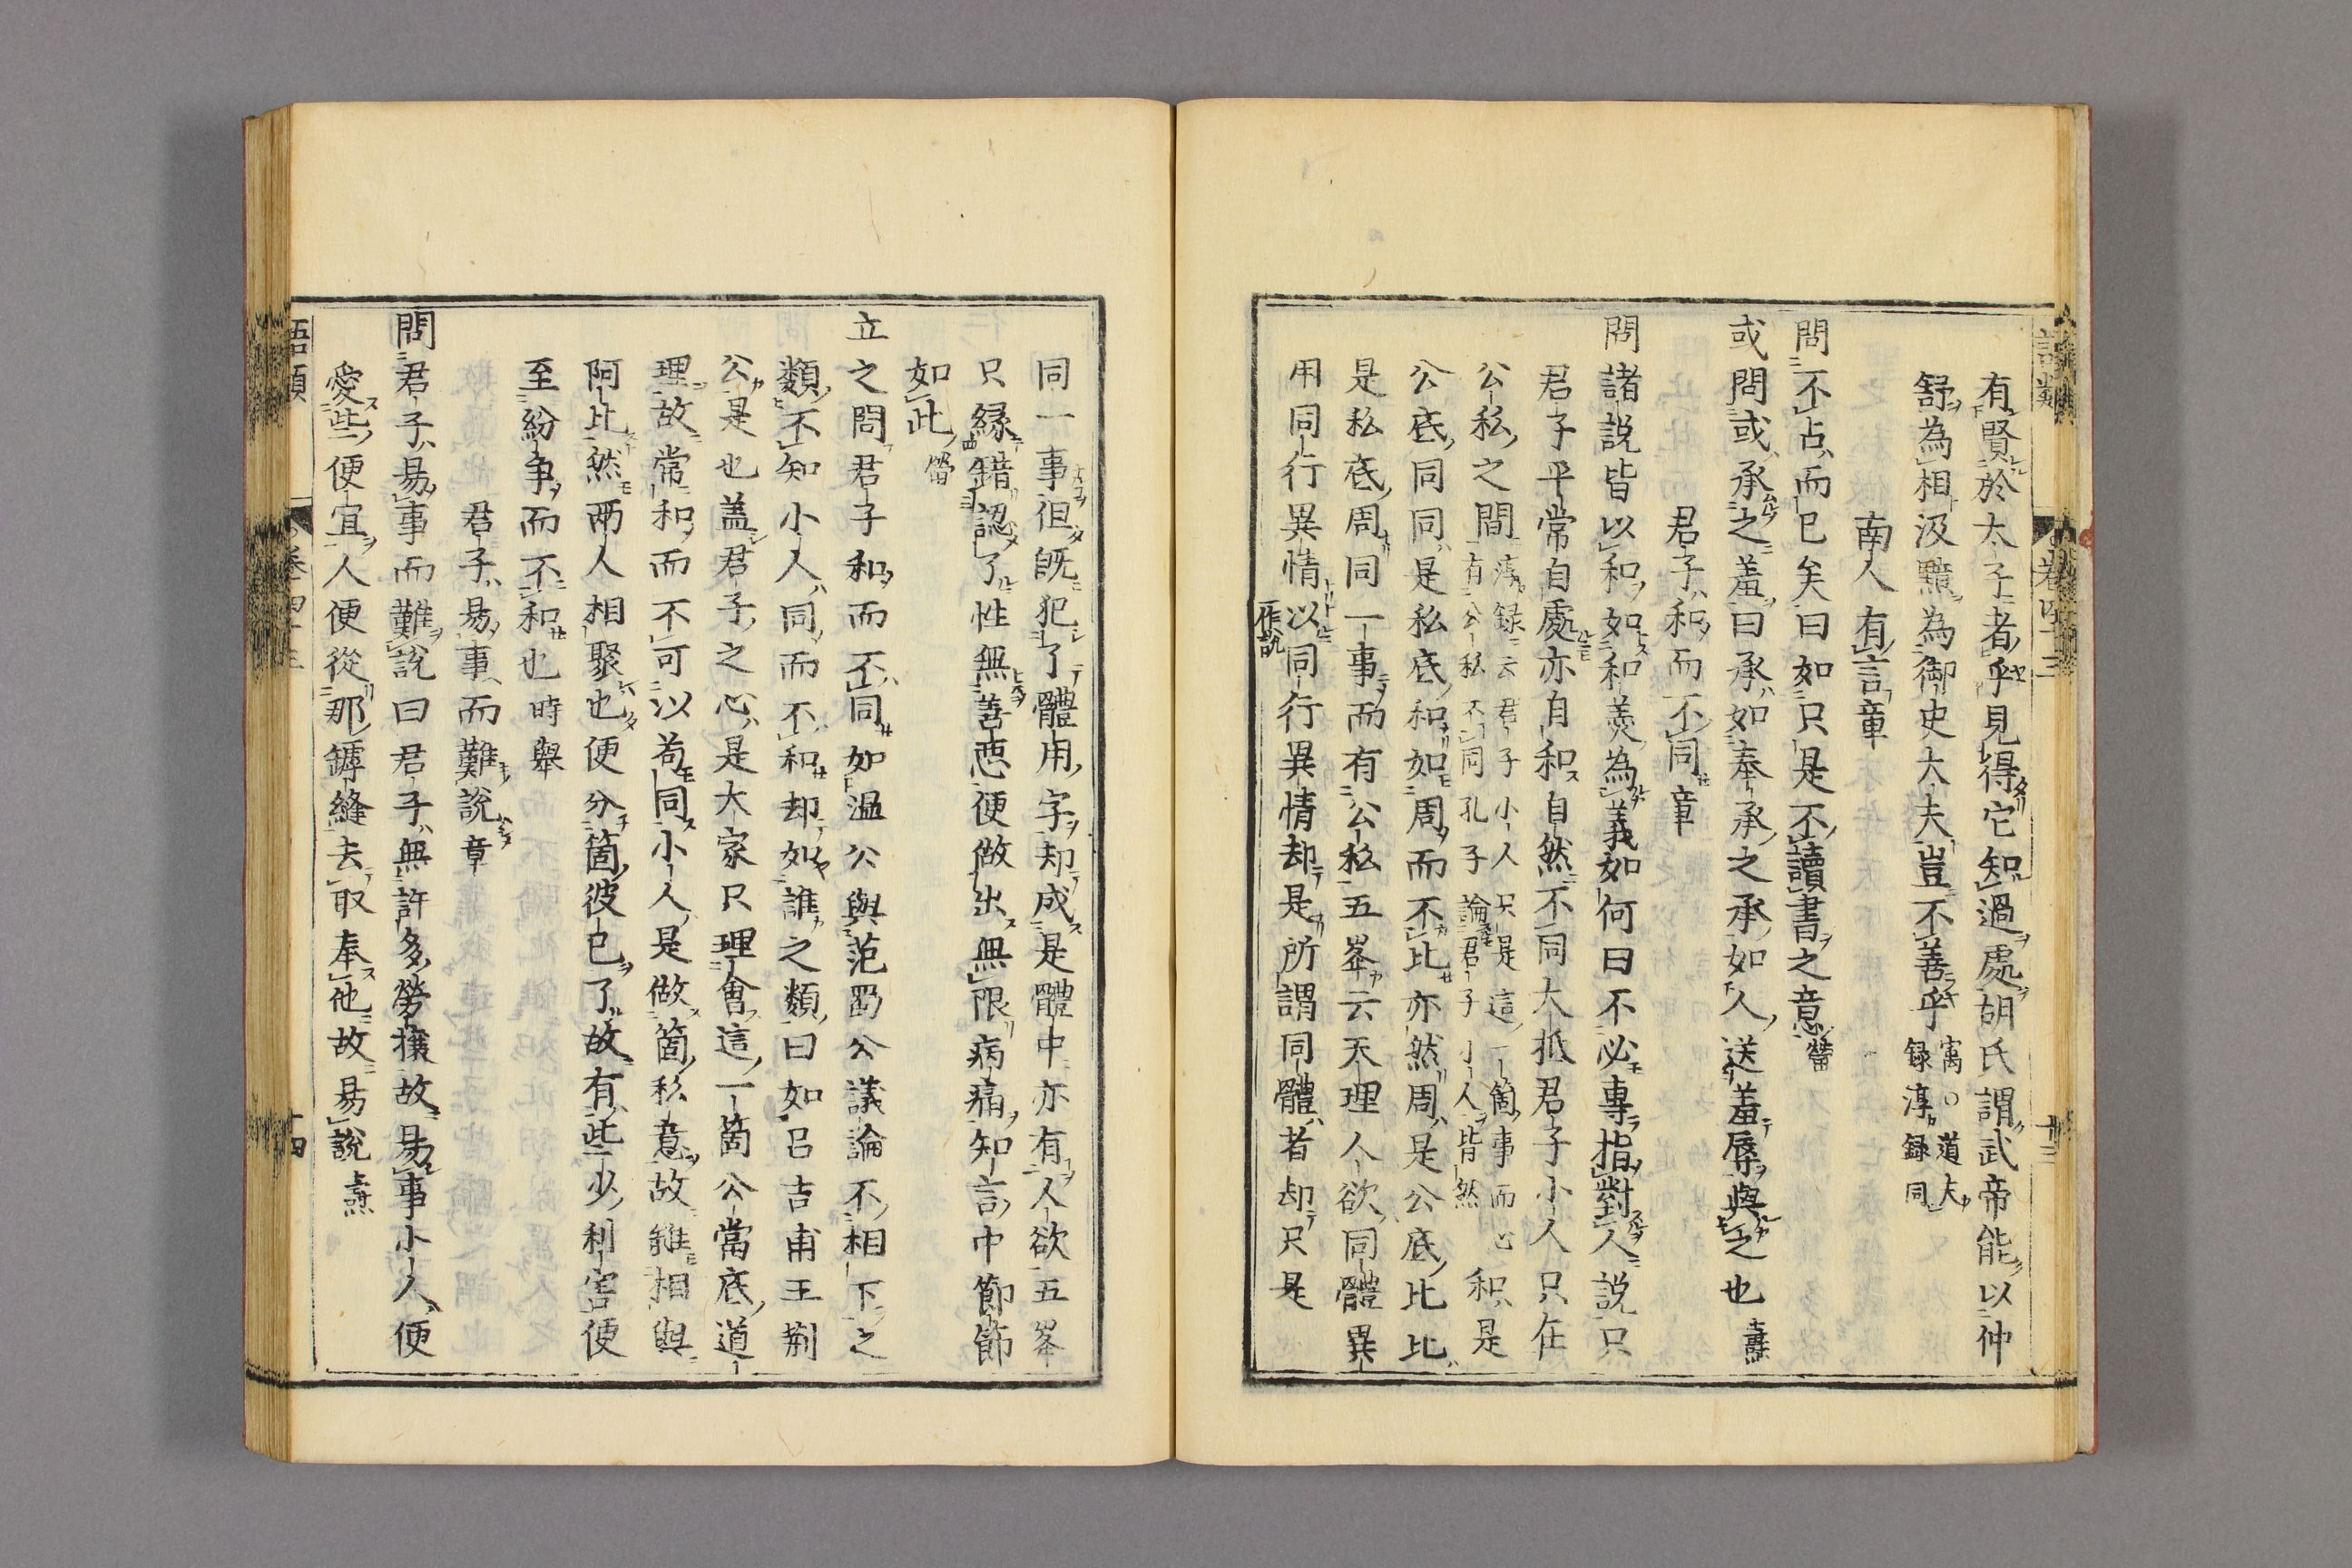 語類
卷四十三
十三
有賢於太子者乎見得它知過處胡氏謂武帝能以仲
舒為相汲黯為御史大夫豈不善乎㝢○道夫録淳録同
南人有言章
問不占而已矣曰如只是不讀書之意𤁋
或問或承之羞曰承如奉承之承如人送羞辱與之也燾
君子和而不同章
問諸說皆以和如和羹為義如何曰不必專指對人說只
君子平常自處亦自和自然不同大抵君子小人只在
公私之間淳録云君子小人只是這一箇事而心有公私不同孔子論君子小人皆然和是
公底同同是私底和如周而不比亦然周是公底比比
是私底周同一事而有公私五峯云天理人欲同體異
用同行異情以一作說同行異情却是所謂同體者却只是
同一事徂既犯了體用字却成是體中亦有人欲五峯
只縁錯認了性無善惡便做出無限病痛知言中節節
如此𤁋
立之問君子和而不同如溫公與范蜀公議論不相下之
類不知小人同而不和却如誰之類曰如呂吉甫王荆
公是也盖君子之心是大家只理會這一箇公當底道
理故常和而不可以苟同小人是做箇私意故雖相與
阿比然兩人相聚也便分箇彼已了故有些少利害便
至紛争而不和也時舉
君子易事而難說章
問君子易事而難說曰君子無許多勞攘故易事小人便
愛些便宜人便從那罅縫去取奉他故易說燾
語類
卷四十三
十四